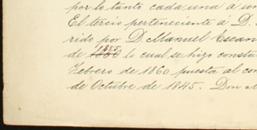 por lo tanto cada una a un
El tercio perteneciente a D.
rido por D. Manuel Escan
1855
de lo cual se hizo consta
Febrero de 1860 puesta al co
de Octubre de 1845. Don